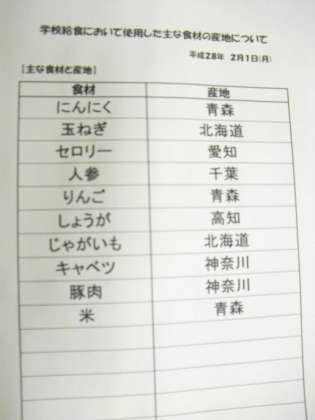 学校給食において使用した主な食材の産地について
平成28年 2月1日(月)
[主な食材と産地]
食材 産地
にんにく 青森
玉ねぎ 北海道
セロリー 愛知
人参 千葉
りんご 青森
しょうが 高知
じゃがいも 北海道
キャベツ 神奈川
豚肉 神奈川
米 青森